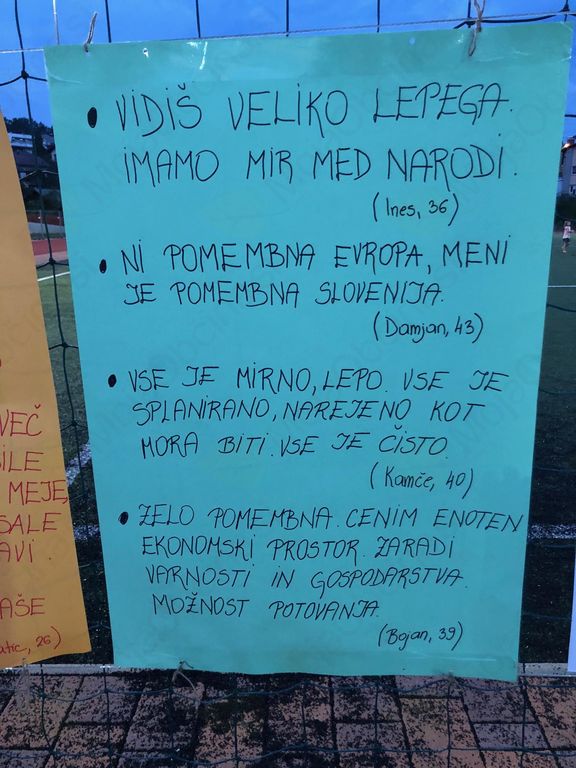 • VIDIŠ VELIKO LEPEGA.
IMAMO MIR MED NARODI.
(Ines, 36)
• NI POMEMBNA EVROPA, MENI
JE POMEMBNA SLOVENIJA.
(Damjan, 43)
• VSE JE MIRNO, LEPO. VSE JE
SPLANIRANO, NAREJENO KOT
MORA BITI. VSE JE ČISTO.
(Kamče, 40)
• ZELO POMEMBNA. CENIM ENOTEN
EKONOMSKI PROSTOR. ZARADI
VARNOSTI IN GOSPODARSTVA.
MOŽNOST POTOVANJA.
(Bojan, 39)
VEČ
MEJE
26)